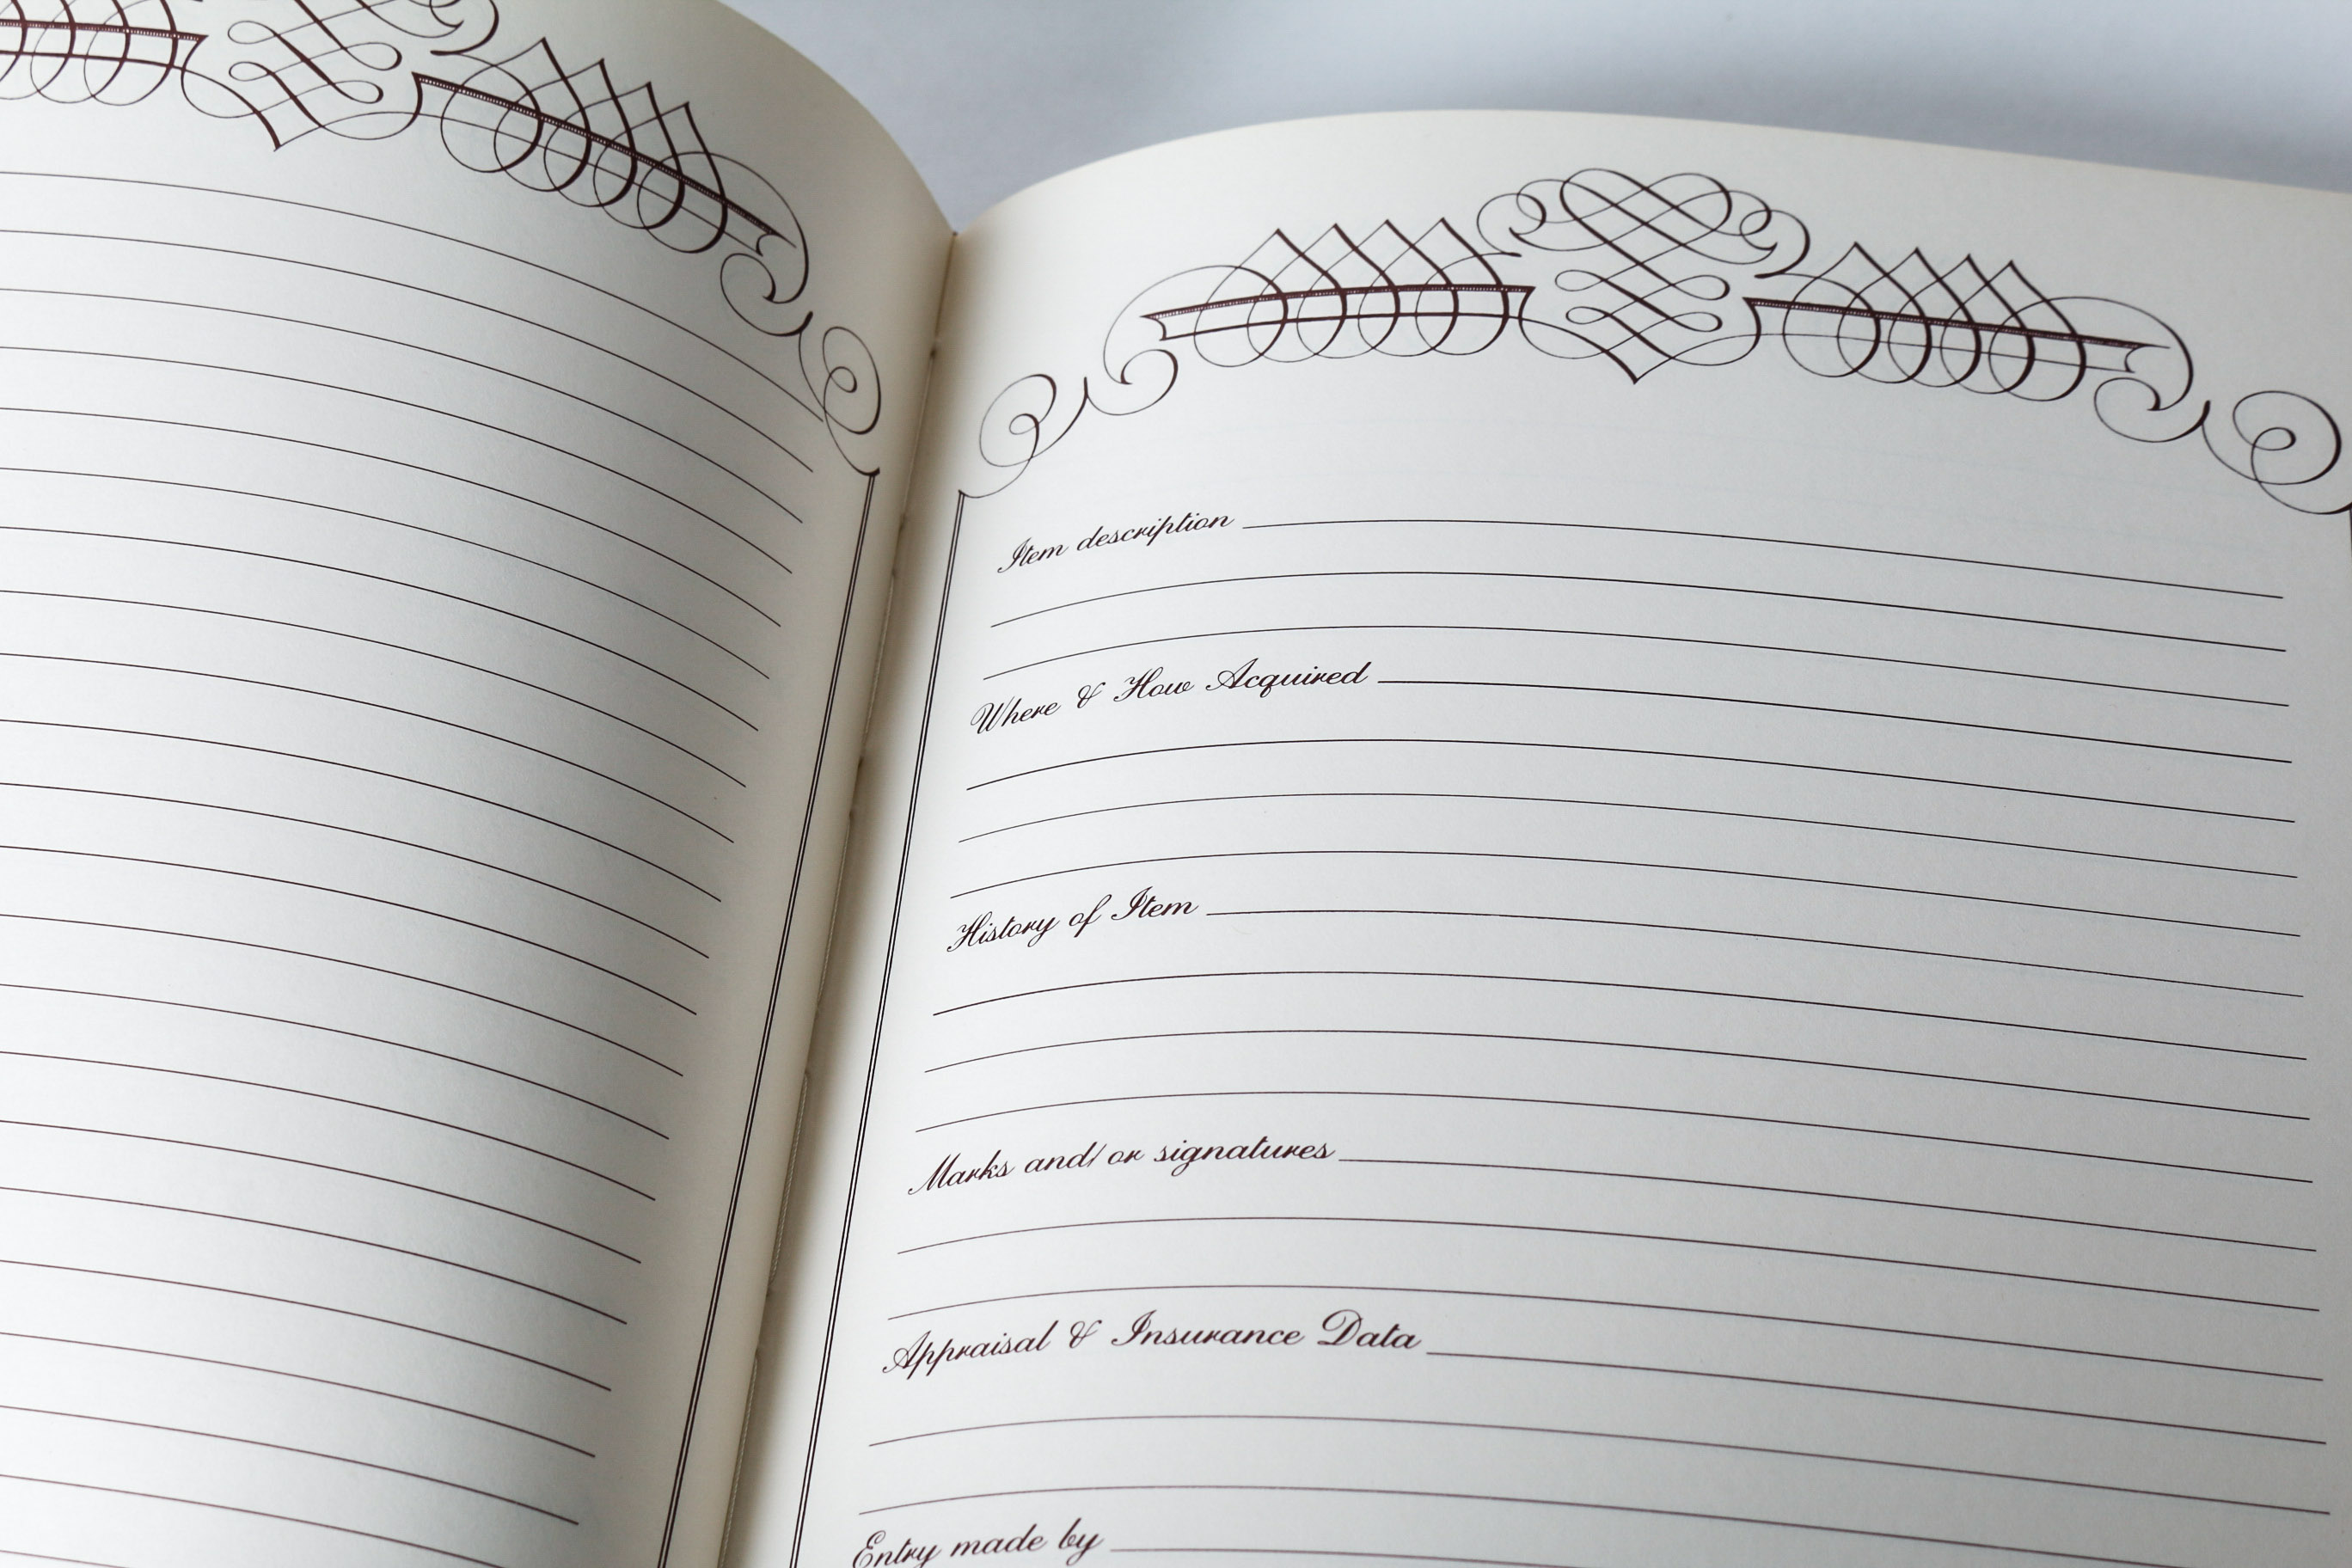 Item description
Where & How Acquired
History of Item
Marks and/or signatures
Appraisal & Insurance Data
Entry made by